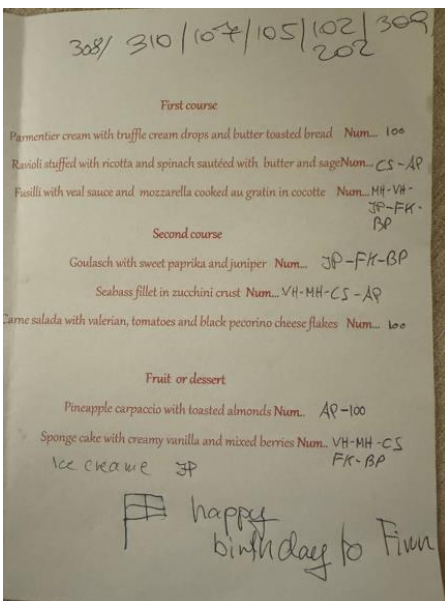 308/ 310/107/105/102/309
202
First course
Parmentier cream with truffle cream drops and butter toasted bread Num... 100
Ravioli stuffed with ricotta and spinach sautéed with butter and sage Num... CS-AP
Fusilli with veal sauce and mozzarella cooked au gratin in cocotte Num... MH-VH-
JP-FK-
BP
Second course
Goulasch with sweet paprika and juniper Num... JP-FK-BP
Seabass fillet in zucchini crust Num... VH-MH-CS-AP
Carne salada with valerian, tomatoes and black pecorino cheese flakes Num... 100
Fruit or dessert
Pineapple carpaccio with toasted almonds Num.. AP-100
Sponge cake with creamy vanilla and mixed berries Num.. VH-MH-CS
FK-BP
Ice creame JP
happy
birthday to Finn